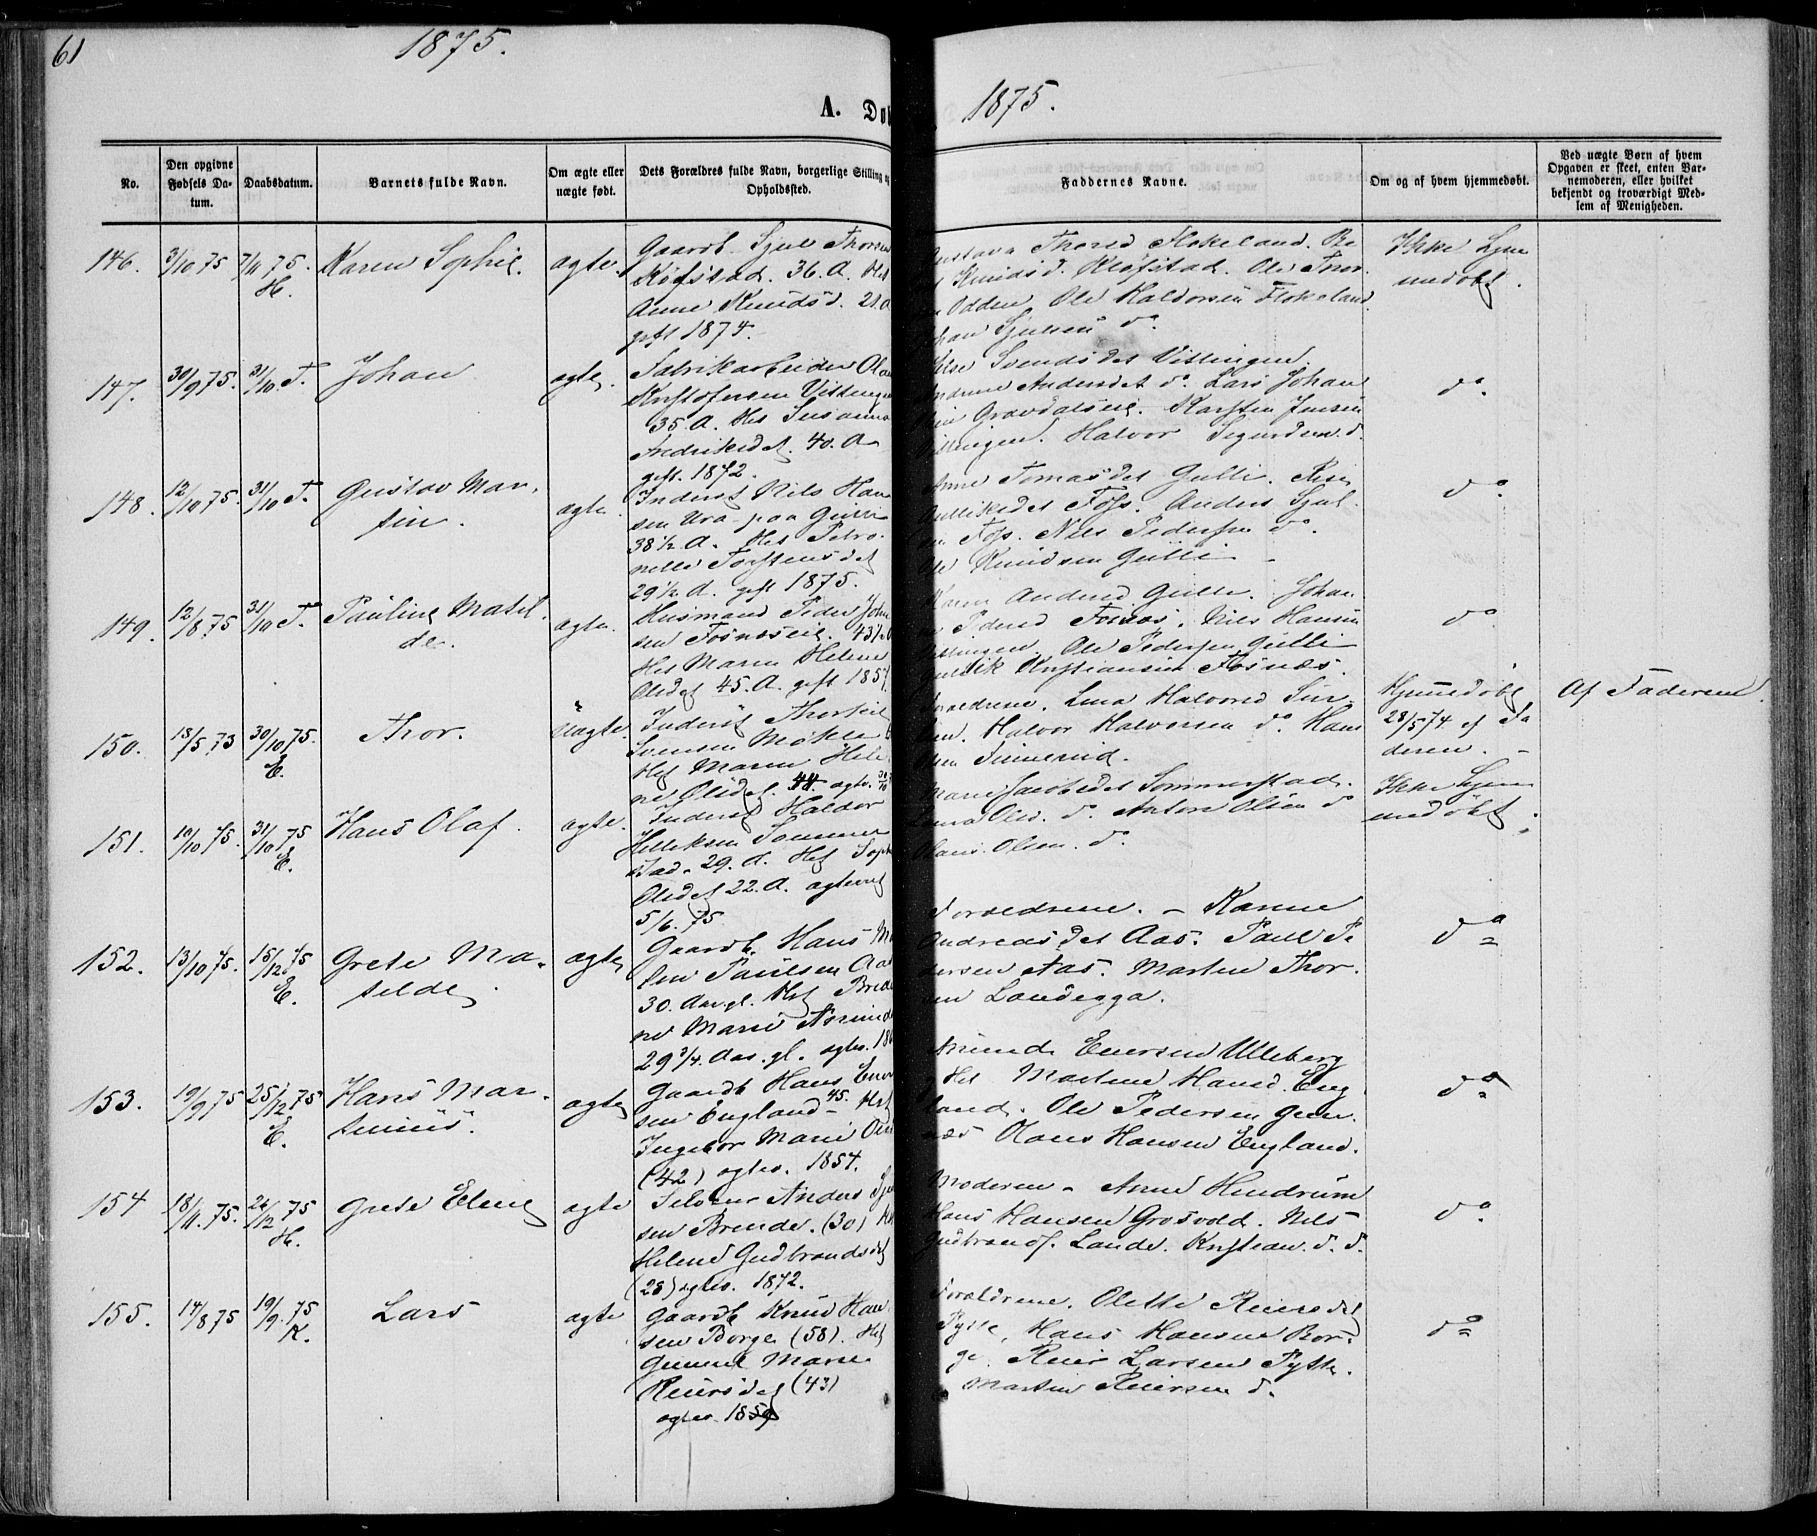 61
1875.
1875.
A. Døb
No.
Den opgivne Fødsels Datum.
Daabsdatum.
Barnets fulde Navn.
Om ægte eller uægte født.
Dets Forældres fulde Navn, borgerlige Stilling og Opholdssted.
Faddernes Navne.
Om og af hvem hjemmedøbt.
Ved uægte Børn af hvem Opgaven er skeet, enten Barnemoderen, eller hvilket bekjendt og troværdigt Medlem af Menigheden.
146. 3/10 75 7/11 75. H. Karen Sophie. ægte.
Gaardb. Sjul Thorsen
36. A. Hst
Anne Knudsd. 21. A
gift 1874.
Gustava Thorsd Flokeland.
Knudsd. Kløfstad. Ole Thor
Odden, Ole Haldorsen Flokeland
Sjulsen do.
Ikke hjem
medøbt.
147. 30/9 75. 31/10 T. Johan ægte.
Fabrikarbeider Ola
Kristofersen Vittingen
35. A. Hst Susanna
Fredriksdt. 40. A
gift. 1872.
Else Svendsdet Vittingen.
Andersdet do. Lars Johan
Gravdalseie. Karsten Jensen
Vittingen. Halvor Sigurdsen. d.
do.
148. 12/10 75. 31/10 T. Gustav Mar-
tin. ægte.
Inderst Nils Han
sen Ura paa Gulli
38 1/2 A. Hst Petro
nelle Torstensdet
29 1/2 A. gift 1875.
Anne Tomasdet Gulli.
Fofs. Anders Sjul
Fofs. Nils Pedersen do.
Ole Knudsen Gulli
do
149. 12/8 75 31/10 T. Pauline Matil
de. ægte.
Husmand Peder Johan
sen Fosnæseie. 43 1/2
Hst Maren Helene
Olsdet 45. A. gift 1857
Karen Andersd Gulli. Johan
Pedersd Fosnæs. Nils Hansen
Vittingen. Ole Pedersen Gulli
Kristiansen Fosnæs.
do
150. 18/5 73 30/10 75. E. Thor. uægte.
Inderst Thorkil
Svensen Møkle
Hst Maren Hele
ne Olsdet. 44. ægtev. 30/10
Forældrene. Lina Halvorsd
Halvor Halvorsen do. Hans
Hjemmedøbt
28/5 74 af Fa
deren.
Af Faderen
151. 10/10 75. 31/10 75 E. Hans Olaf. ægte.
Inderst Haldor
Helleksen Sommer
stad. 29. A. Hst Soph
Olsdet 22. A. ægteviet
5/6. 75.
Marie Jacobsdet Sommerstad.
Olsd. d. Anton Olsen do
Hans. Olsen. do.
Ikke hjem
medøbt.
152. 13/10 75. 15/12 75 E. Grete Ma-
tilde. ægte
Gaardb. Hans Ma
Paulsen Aas
30. Aar gl. Hst
ne Marie Asmunds
29 3/4. Aar. gl. ægtev.
Forældrene. - Karine
Andreasdet Aas. Paul Pe
dersen Aas. Martin Thor
sen Landegga.
do
153. 19/9 75 25/12 75 E. Hans Mar-
tinius. ægte
Gaardb Hans Ener
sen England 45. Hst
Ingebor Marie Olsd
(42) ægtev. 1854.
Amund Enersen Ulleberg
Hst Martine Hansd. Eng
land. Ole Pedersen Gun
næs Hans Hansen England.
do
154 18/11. 75. 26/12 75 H. Grete Eline ægte
Selvei Anders
sen Brende. (30) Hst
Helene Gudbrandsdet
(28) ægtev. 1872.
Moderen - Anne Hindrum
Hans Hansen Grosvold. Nils
Gudbrands. Lande. Kristian. d. d.
do.
155. 14/8 75 19/9. 75 K. Lars ægte
Gaardb Knud Han
sen Borge (58). Hst
Gunnil Marie
Reiersdet (43)
ægtev. 1859
Forældrene. Olette Reiersdet
Pytte, Hans Hansen Bor
ge. Reier Larsen Pytte.
Martin Reiersen d.
do